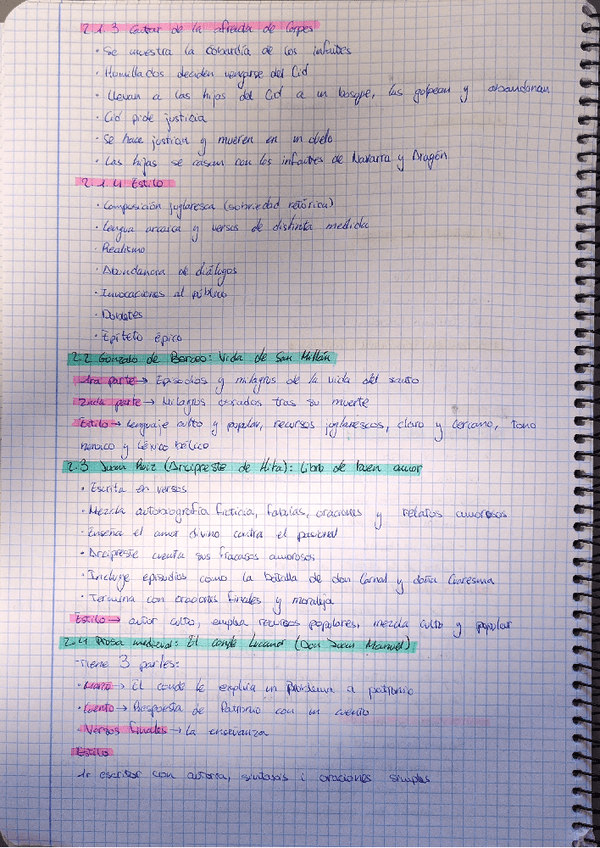 2.1.3 Cantar de la afrenta de Corpes
· Se muestra la cobardía de los infantes
· Humillados deciden vengarse del Cid
· Llevan a las hijas del Cid a un bosque, las golpean y abandonan
· Cid pide justicia
· Se hace justicia y mueren en un duelo
· Las hijas se casan con los infantes de Navarra y Aragón
2.1.4 Estilo
· Composición juglaresca (sobriedad retórica)
· Lengua arcaica y versos de distinta medida
· Realismo
· Abundancia de diálogos
· Invocaciones al público
· Dobletes
· Epíteto épico
2.2 Gonzalo de Berceo: Vida de San Millán
1ra parte → Episodios y milagros de la vida del santo
2nda parte → Milagros obrados tras su muerte
Estilo → lenguaje culto y popular, recursos juglarescos, claro y cercano, tono
heroico y léxico bélico
2.3 Juan Ruiz (Arcipreste de Hita): Libro de buen amor
· Escrita en versos
· Mezcla autobiografía ficticia, fábulas, oraciones y relatos amorosos
· Enseña el amor divino contra el pasional
· Arcipreste cuenta sus fracasos amorosos
· Incluye episodios como la batalla de don Carnal y doña Cuaresma
· Termina con oraciones finales y moraleja
Estilo → autor culto, emplea recursos populares, mezcla culto y popular
2.4 Prosa medieval: El conde Lucanor (Don Juan Manuel)
- Tiene 3 partes:
· Marco → El conde le explica un problema a patronio
· Cuento → Respuesta de Patronio con un cuento
· Versos finales → La enseñanza
Estilo
1r escritor con autoría, sintaxis i oraciones simples